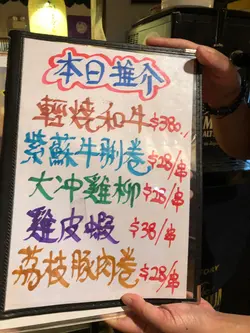 本日推介
輕燒和牛 $380.
紫蘇牛脷卷 $28/串
大冲雞柳 $28/串
雞皮蝦 $38/串
荔枝豚肉卷 $28/串